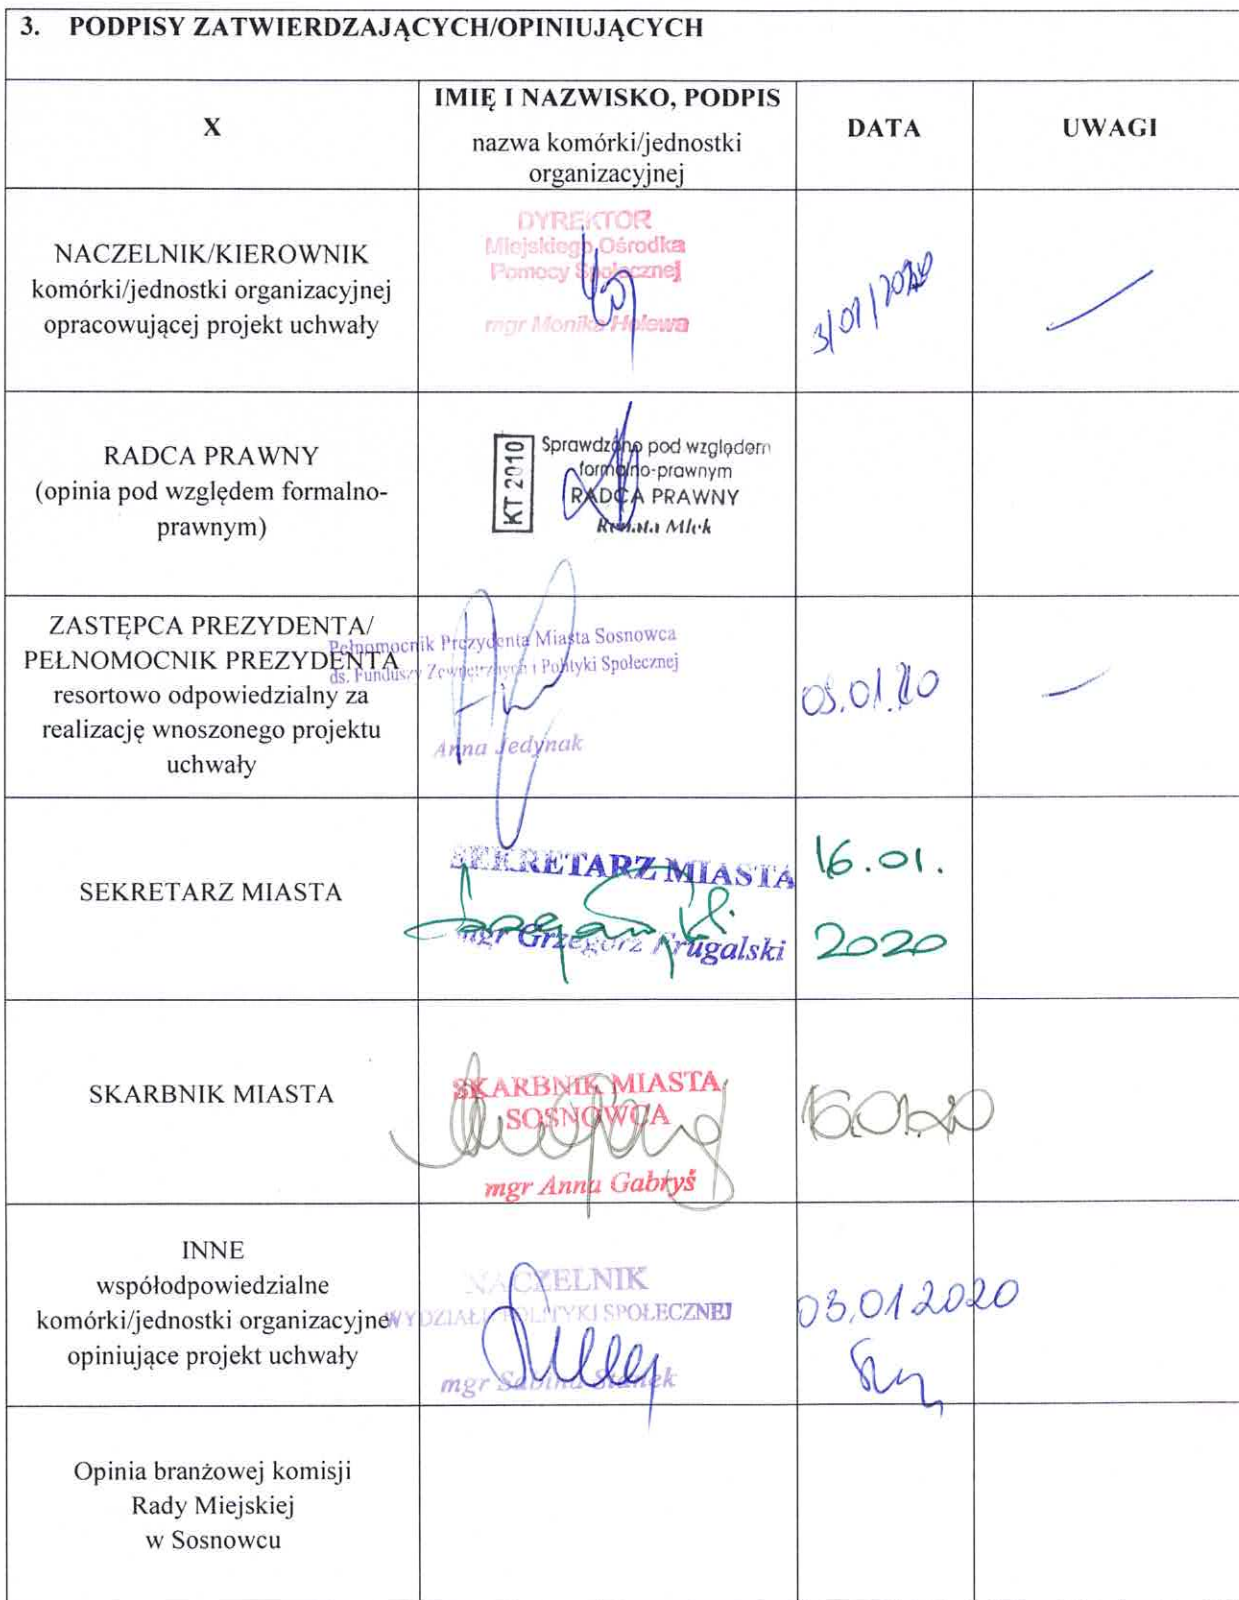 3. PODPISY ZATWIERDZAJĄCYCH/OPINIUJĄCYCH
X
IMIĘ I NAZWISKO, PODPIS
nazwa komórki/jednostki
organizacyjnej
DATA
UWAGI
NACZELNIK/KIEROWNIK
komórki/jednostki organizacyjnej
opracowującej projekt uchwały
DYREKTOR
Miejskiego Ośrodka
Pomocy Społecznej
mgr Monika Holewa
3/01/2020
RADCA PRAWNY
(opinia pod względem formalno-
prawnym)
KT 2010
Sprawdzono pod względem
formalno-prawnym
RADCA PRAWNY
Renata Mlek
ZASTĘPCA PREZYDENTA/
PEŁNOMOCNIK PREZYDENTA
resortowo odpowiedzialny za
realizację wnoszonego projektu
uchwały
Pełnomocnik Prezydenta Miasta Sosnowca
ds. Funduszy Zewnętrznych i Polityki Społecznej
Anna Jedynak
SEKRETARZ MIASTA
SEKRETARZ MIASTA
mgr Grzegorz Frugalski
16.01.
2020
SKARBNIK MIASTA
SKARBNIK MIASTA
SOSNOWCA
mgr Anna Gabryś
INNE
współodpowiedzialne
komórki/jednostki organizacyjne
opiniujące projekt uchwały
NACZELNIK
WYDZIAŁU POLITYKI SPOŁECZNEJ
mgr Sabina Stanek
03.01.2020
Opinia branżowej komisji
Rady Miejskiej
w Sosnowcu